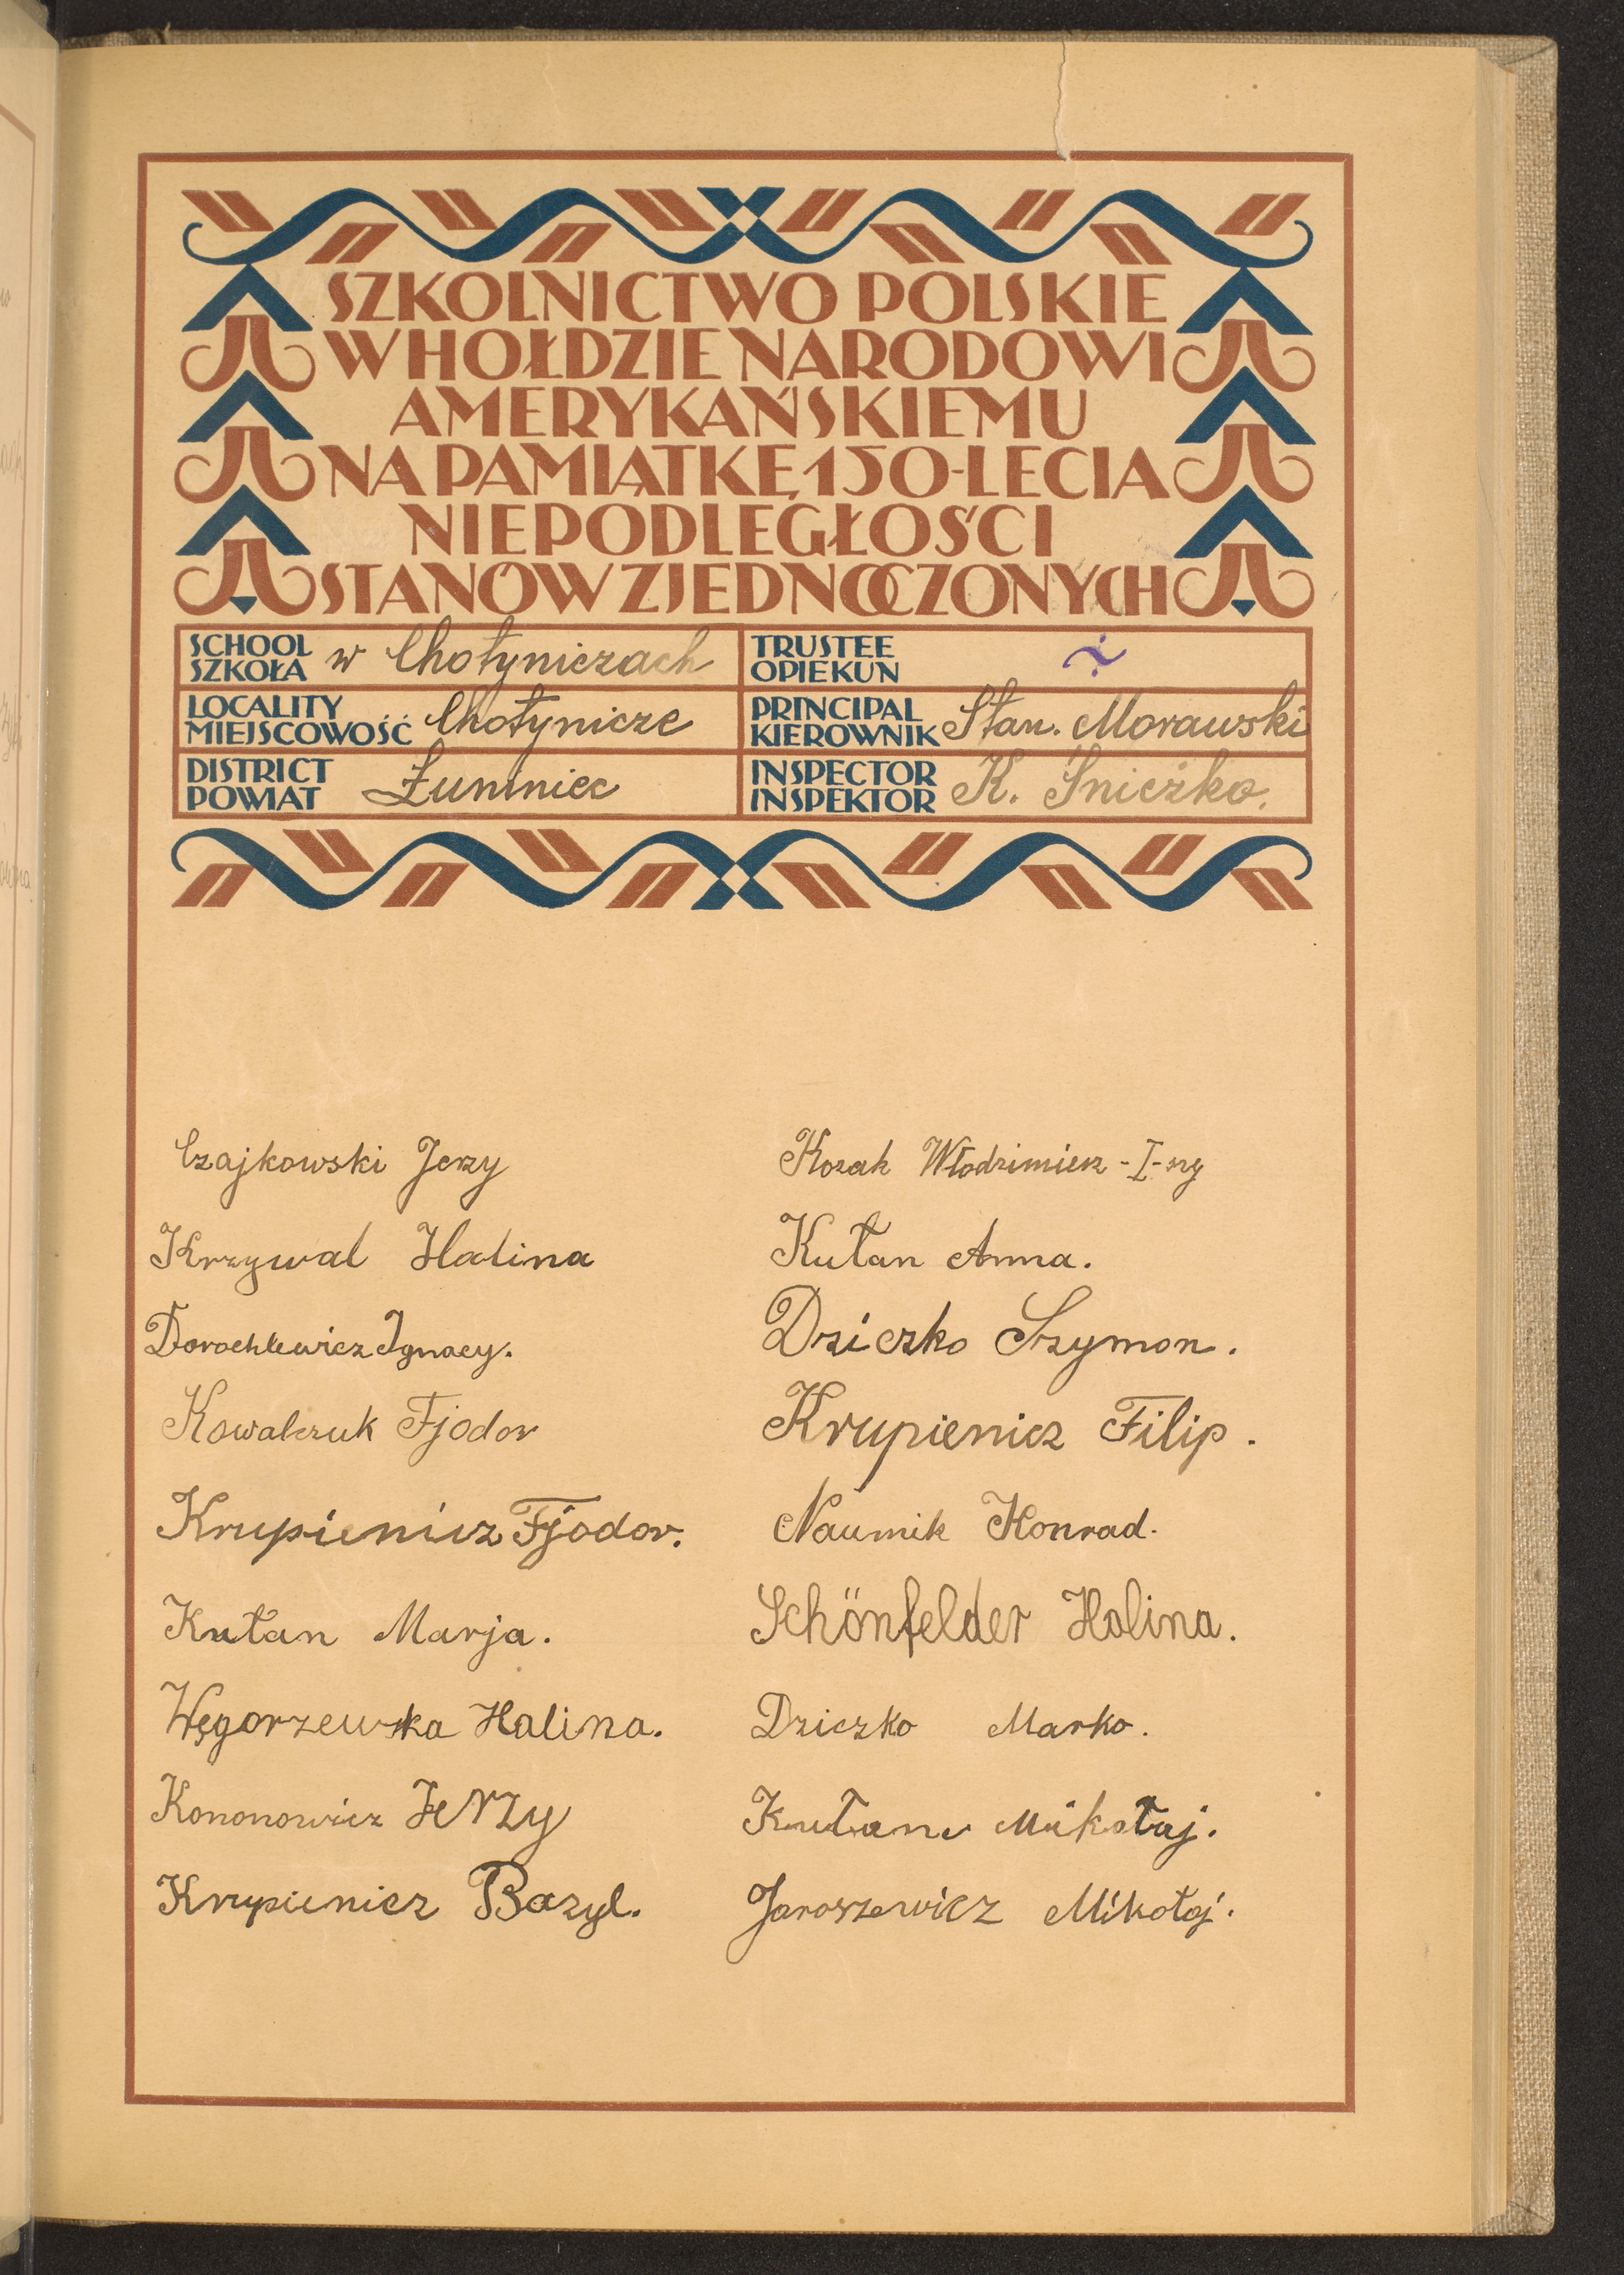 SZKOLNICTWO POLSKIE
W HOŁDZIE NARODOWI
AMERYKAŃSKIEMU
NA PAMIĄTKĘ 150-LECIA
NIEPODLEGŁOŚCI
STANÓW ZJEDNOCZONYCH
SCHOOL
SZKOŁA w Chotyniczach
TRUSTEE
OPIEKUN
LOCALITY
MIEJSCOWOŚĆ Chotynicze
PRINCIPAL
KIEROWNIK Stan. Morawski
DISTRICT
POWIAT Łuniniec
INSPECTOR
INSPEKTOR K. Śnieżko.
Czajkowski Jerzy
Krzywal Halina
Dorochlewicz Ignacy.
Kowalczuk Fjodor
Krupienicz Fjodor.
Kułan Marja.
Węgorzewska Halina.
Kononowicz Jerzy
Krupienicz Bazyl.
Kozak Włodzimierz - I-szy
Kułan Anna.
Dziczko Szymon.
Krupienicz Filip.
Naumik Konrad.
Schönfelder Halina.
Dziczko Marko.
Kułan Mikołaj.
Jaroszewicz Mikołaj.